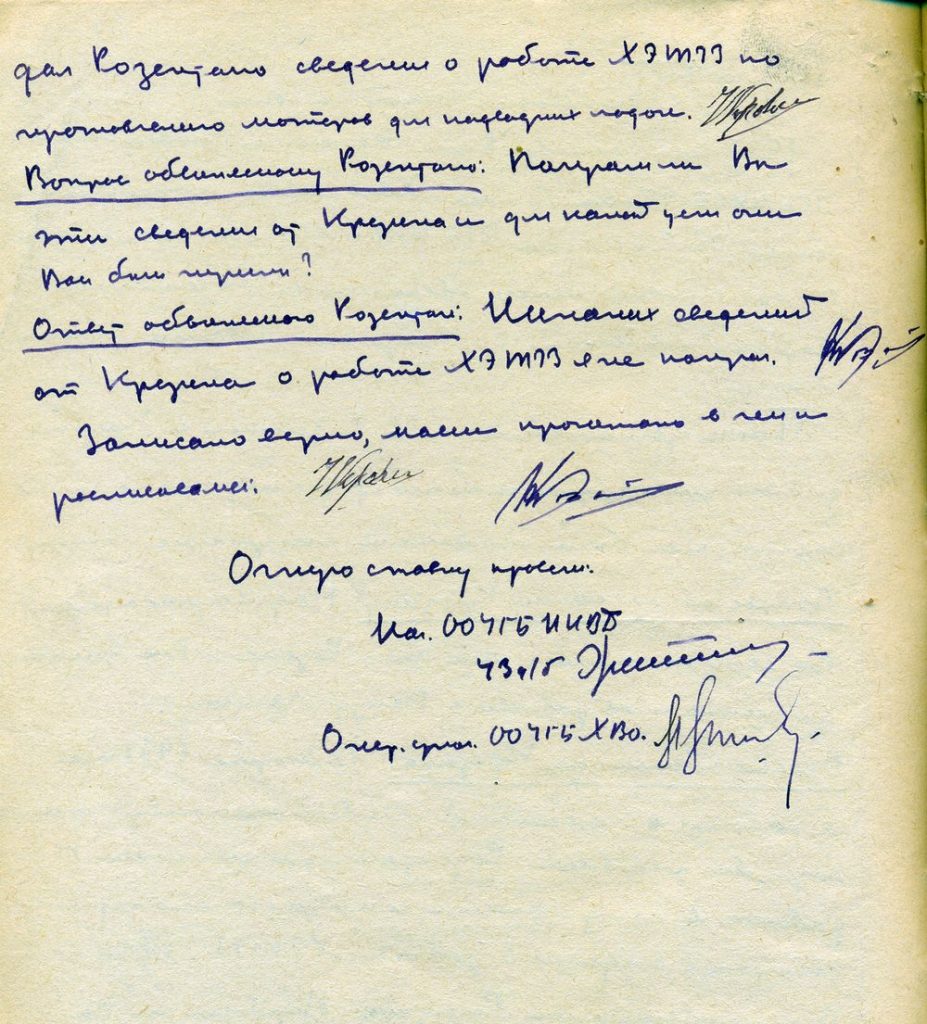 дал Розенталю сведения о работе ХЭТЗ по
изготовлению моторов для подводных лодок.
Вопрос обвиняемому Розенталю: Получали ли Вы
эти сведения от Крезена и для какой цели они
Вам были нужны?
Ответ обвиняемого Розенталя: Никаких сведений
от Крезена о работе ХЭТЗ я не получал.
Записано верно, нами прочитано в чем и
расписываемся.
Очную ставку провели:
Нач. ОО УГБ НКВД
Опер. упол. ОО УГБ ХВО.